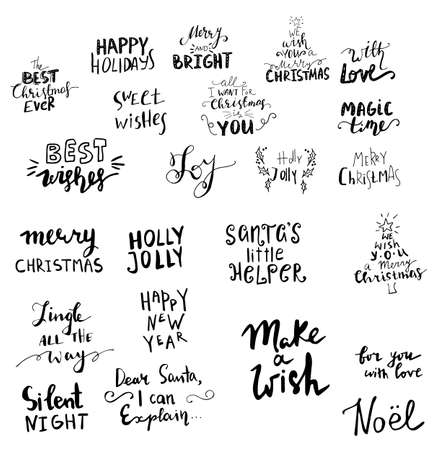 The
BEST
Christmas
EVER
HAPPY
HOLIDAYS
Merry
AND
BRIGHT
WE
wish
YOU a
Merry
CHRISTMAS
with
Love
SWEET
wishes
all
I WANT FOR
Christmas
is
YOU
MAGIC
time
BEST
wishes
Joy
Holly
Jolly
MERRY
CHRISTMAS
merry
CHRISTMAS
HOLLY
JOLLY
SANTA'S
little
HELPER
WE
WISH
Y.O.U
a Merry
Christmas
Jingle
ALL THE
Way
HAPPY
NEW
YEAR
Make
a
Wish
for you
with love
Silent
NIGHT
Dear Santa,
I can
Explain...
Noël